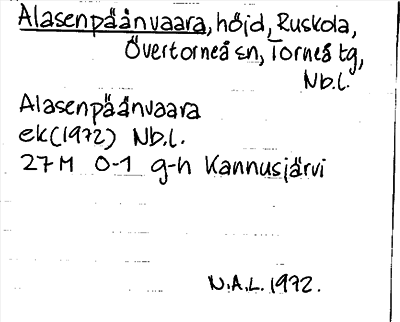 Alasenpäänvaara, höjd, Ruskola,
Övertorneå sn, Torneå tg,
Nb.l.
Alasenpäänvaara
ek(1972) Nb.l.
27M 0-1 g-h Kannusjärvi
N.A.L. 1972.